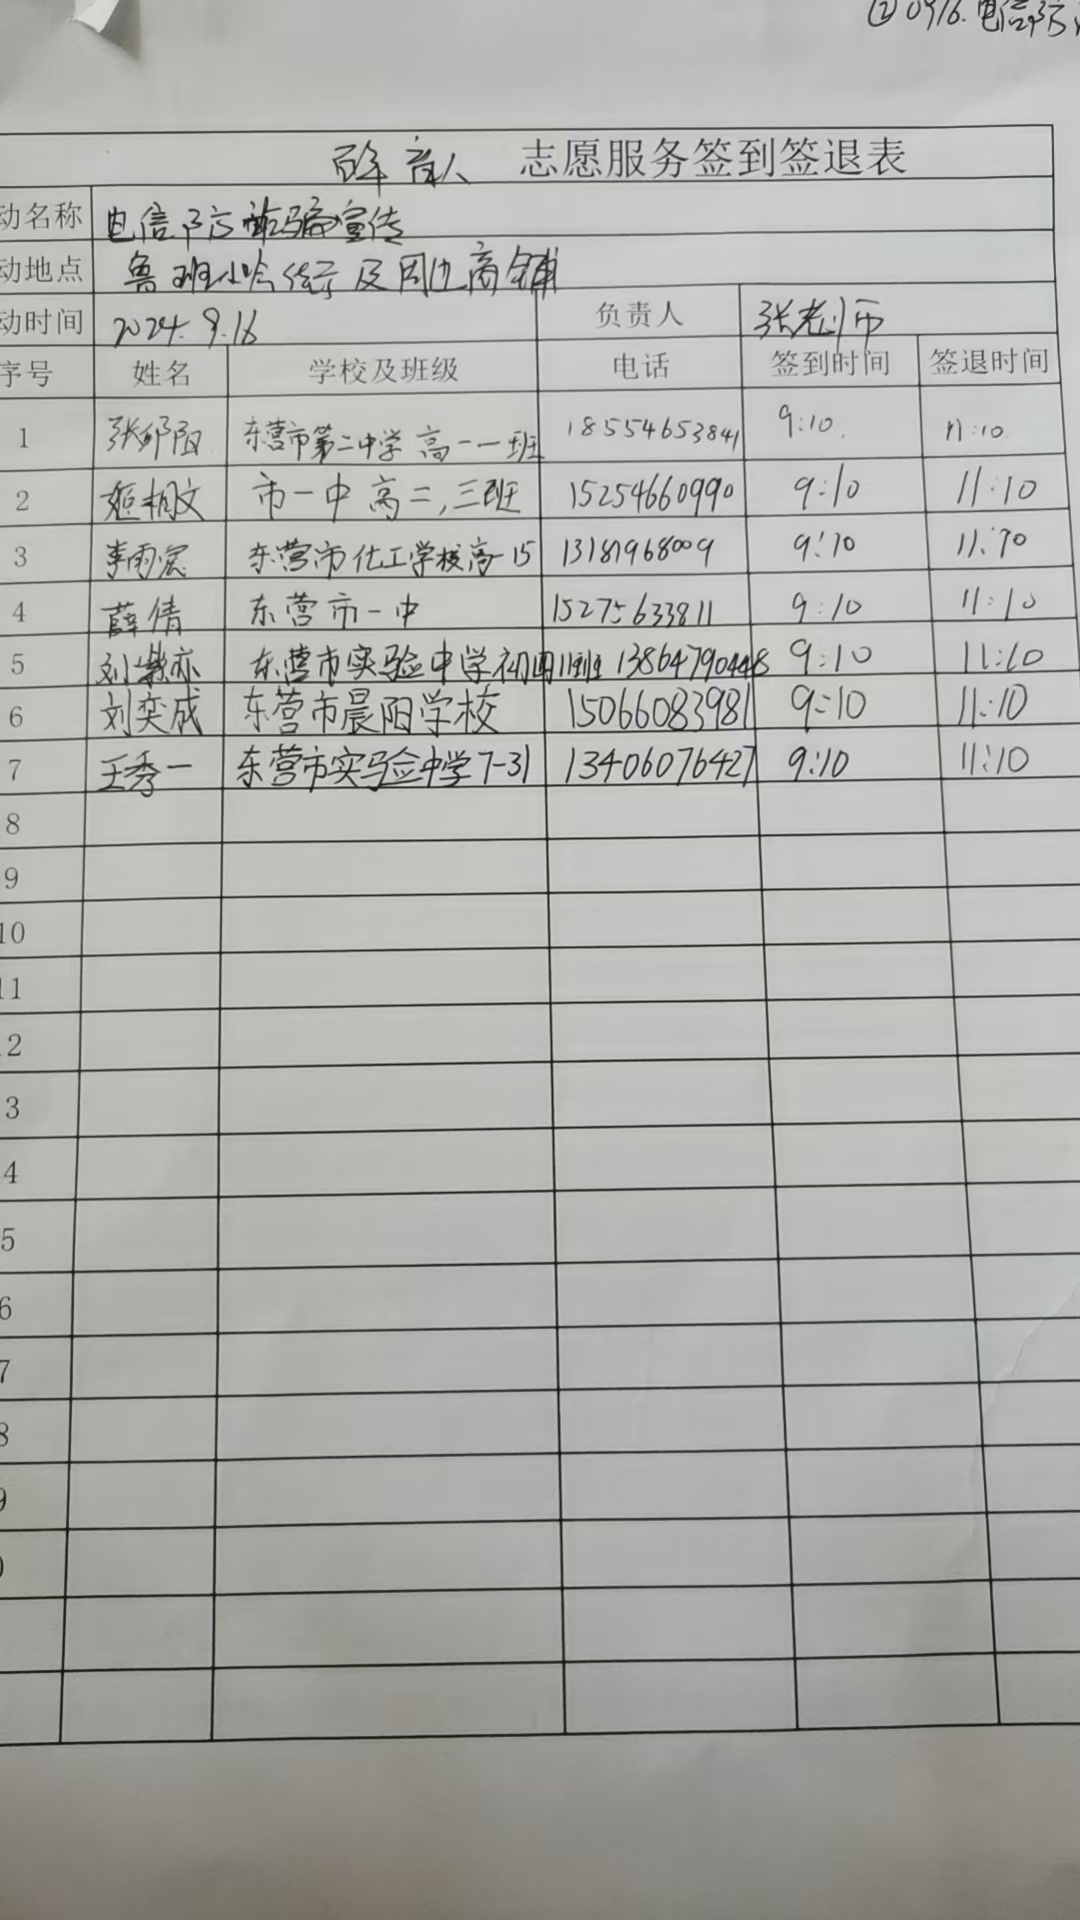 ② 0916.电信防
百年育人 志愿服务签到签退表
动名称 电信防诈骗宣传
动地点 鲁班小吃街及周边商铺
动时间 2024.9.16 负责人 张老师
序号 姓名 学校及班级 电话 签到时间 签退时间
1 张 阳 东营市第二中学 高一一班 18554653841 9:10. 11:10.
2 姬相文 市一中 高二,三班 15254660990 9:10 11:10
3 李雨宸 东营市化工学校高一15 13181968009 9:10 11:10
4 薛倩 东营市一中 15275633811 9:10 11:10
5 刘 亦 东营市实验中学初四11班 13864790448 9:10 11:10
6 刘奕成 东营市晨阳学校 15066083981 9:10 11:10
7 王秀一 东营市实验中学7-31 13406076427 9:10 11:10
8
9
10
11
2
3
4
5
6
7
8
9